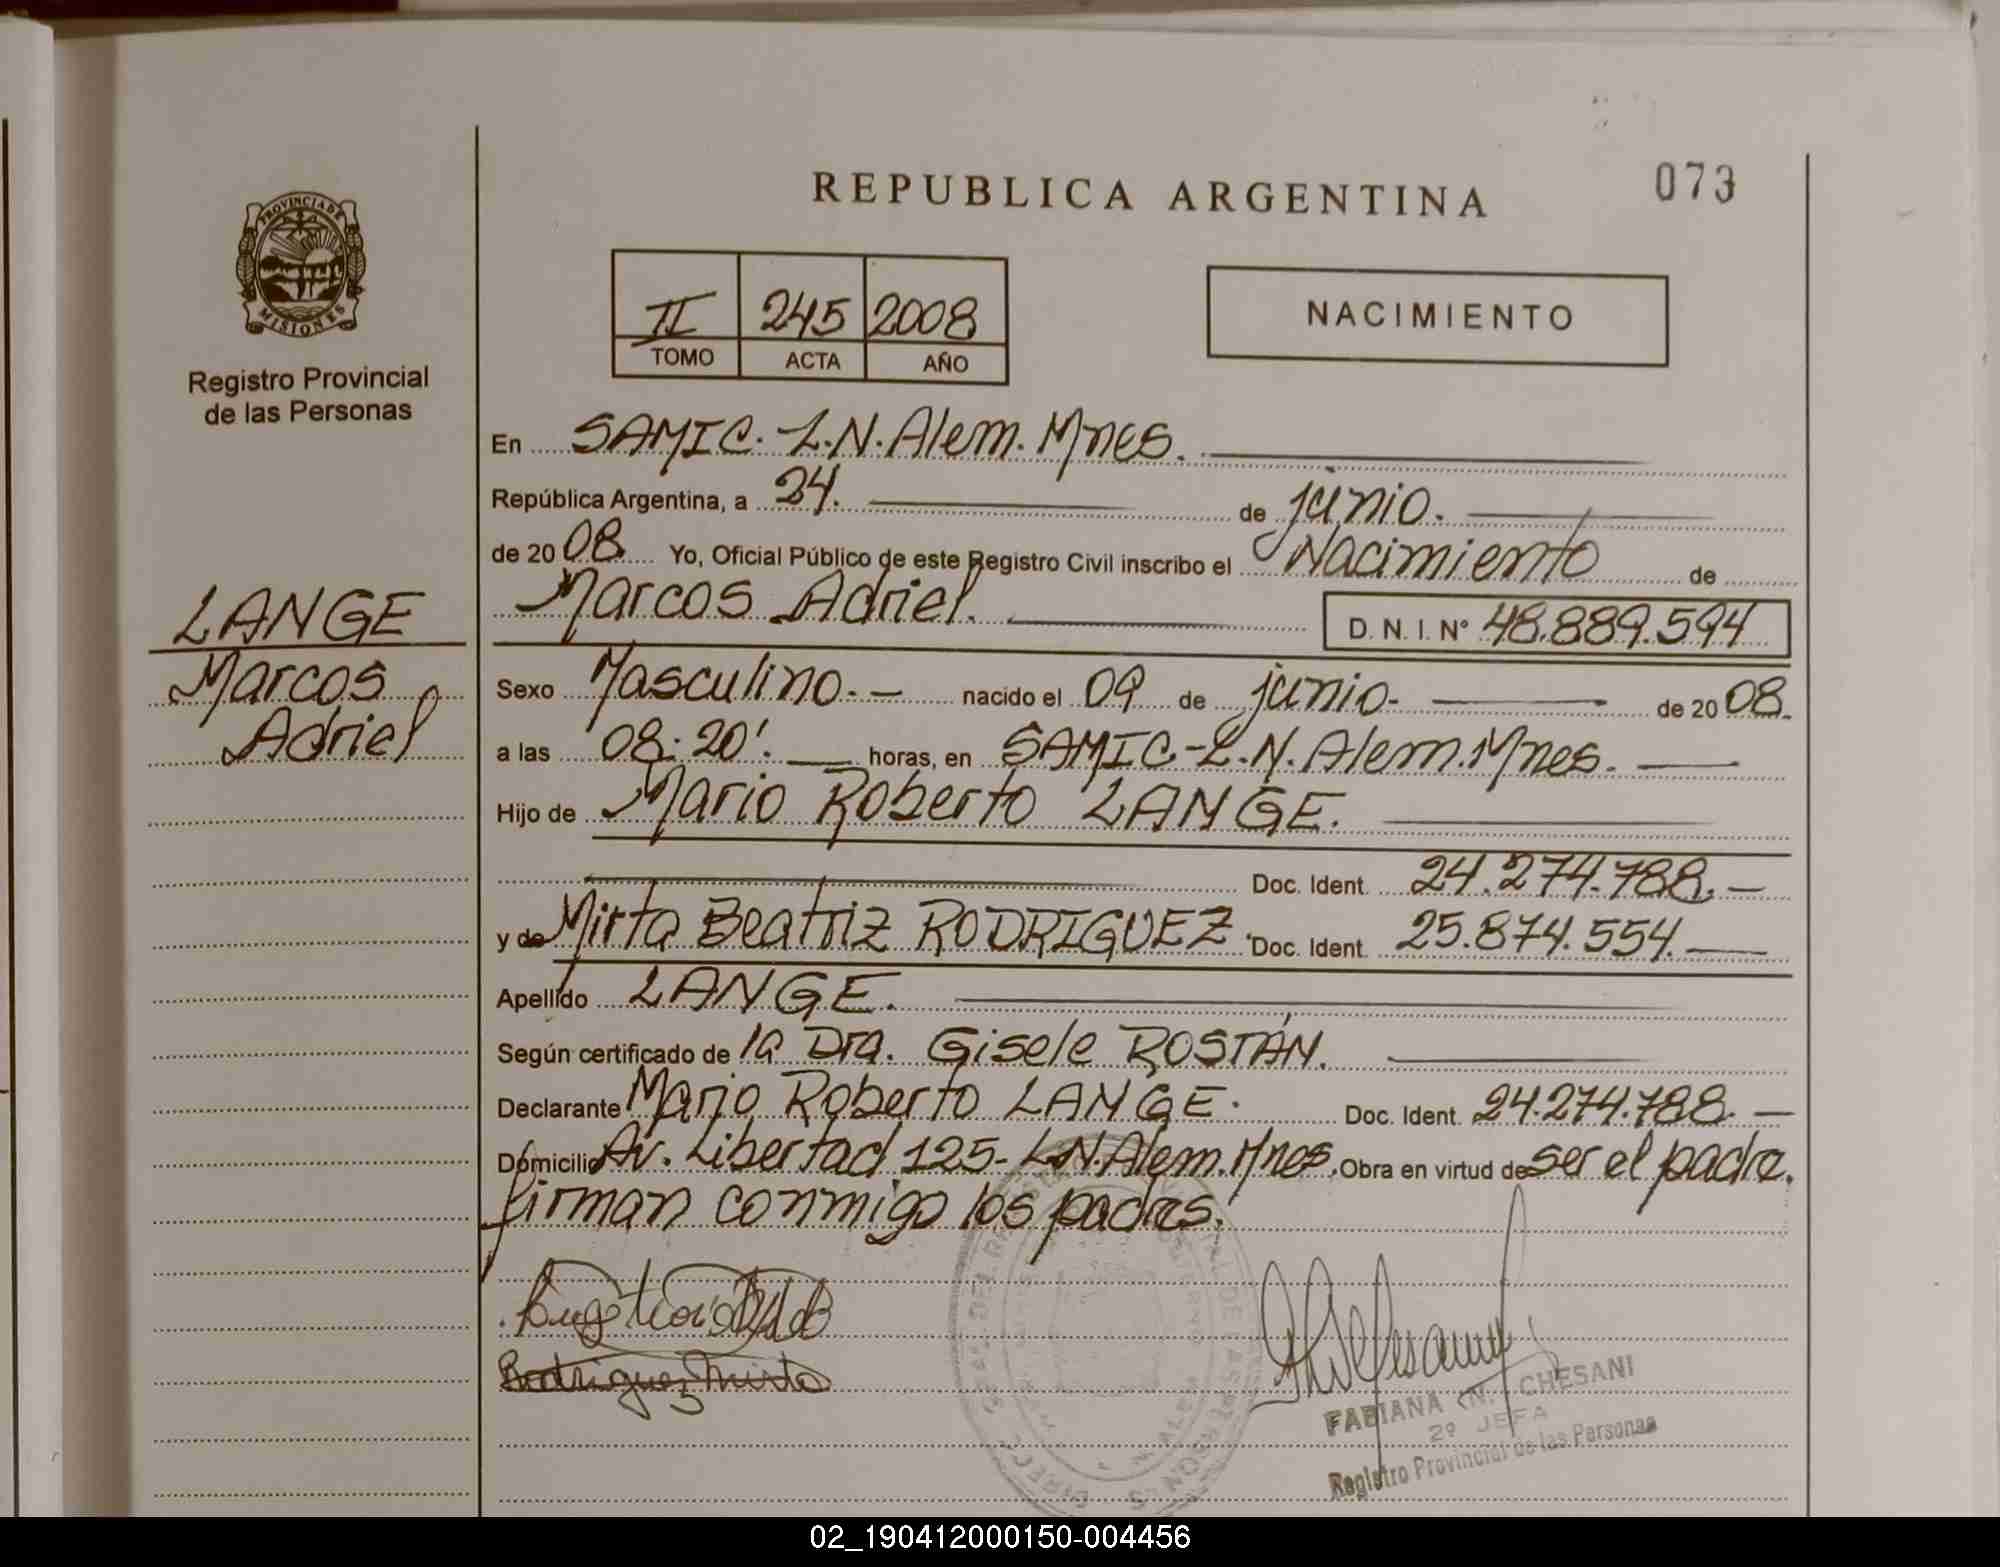 REPUBLICA ARGENTINA
073
PROVINCIA DE
MISIONES
Registro Provincial
de las Personas
II 245 2008
TOMO ACTA AÑO
NACIMIENTO
En SAMIC. L.N. Alem. Mnes.
República Argentina, a 24. de junio.
de 20 08 Yo, Oficial Público de este Registro Civil inscribo el Nacimiento de
Marcos Adriel. D. N. I. N° 48.889.594
LANGE
Marcos
Adriel
Sexo Masculino. - nacido el 09 de junio- de 20 08.
a las 08:20'. horas, en SAMIC-L.N. Alem. Mnes.
Hijo de Mario Roberto LANGE.
Doc. Ident. 24.274.788. -
y de Mirta Beatriz RODRIGUEZ. Doc. Ident. 25.874.554. -
Apellido LANGE.
Según certificado de la Dra. Gisele ROSTÁN.
Declarante Mario Roberto LANGE. Doc. Ident. 24.274.788. -
Domicilio Av. Libertad 125- L.N. Alem. Mnes. Obra en virtud de ser el padre.
firman conmigo los padres.
Rodriguez Mirta
FABIANA N. CHESANI
2º JEFA
Registro Provincial de las Personas
02_190412000150-004456